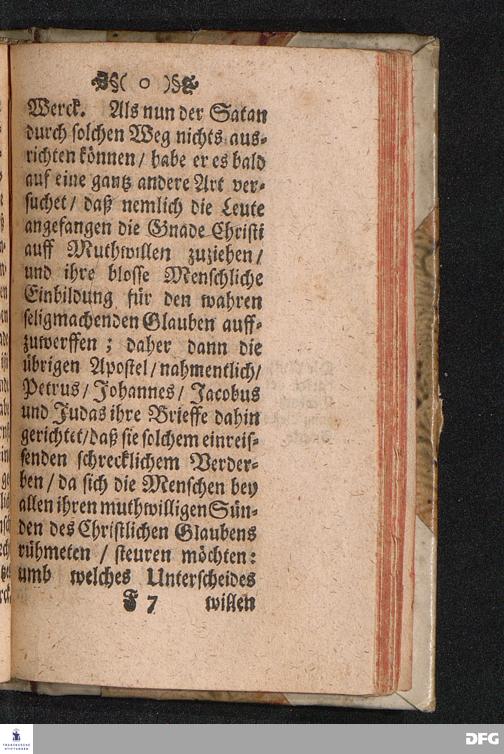 ❧§( o )§❧
Werck. Als nun der Satan
durch solchen Weg nichts aus-
richten können / habe er es bald
auf eine gantz andere Art ver-
suchet / daß nemlich die Leute
angefangen die Gnade Christi
auff Muthwillen zuziehen /
und ihre blosse Menschliche
Einbildung für den wahren
seligmachenden Glauben auff-
zuwerffen ; daher dann die
übrigen Apostel / nahmentlich /
Petrus / Johannes / Jacobus
und Judas ihre Brieffe dahin
gerichtet / daß sie solchem einreis-
senden schrecklichem Verder-
ben / da sich die Menschen bey
allen ihren muthwilligen Sün-
den des Christlichen Glaubens
rühmeten / steuren möchten:
umb welches Unterscheides
F 7 willen
FRANCKESCHE STIFTUNGEN
DFG